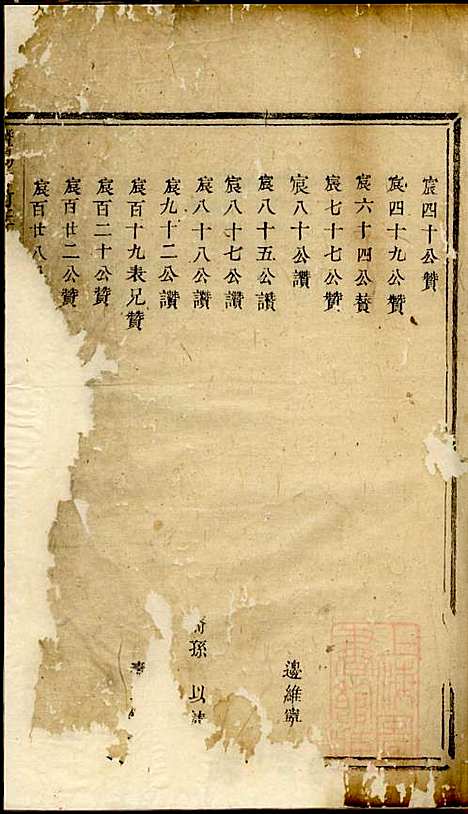 宸四十公贊
宸四十九公贊
宸六十四公賛
宸七十七公贊
宸八十公讚 邊維寧
宸八十五公讚
宸八十七公讚
宸八十八公讚 孫以
宸九十二公讚
宸百十九表兄贊
宸百二十公贊
宸百廿二公贊
宸百廿八